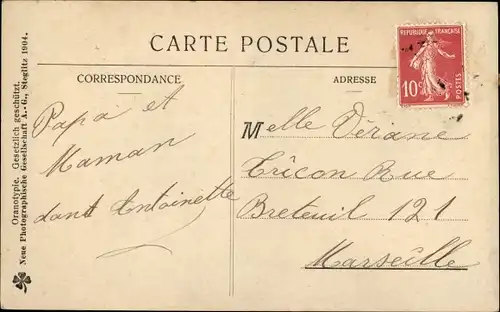 CARTE POSTALE
CORRESPONDANCE
ADRESSE
REPUBLIQUE FRANÇAISE
10c
POSTES
Papa et
Maman
dont Antoinette
Melle Vérane
Tricon Rue
Breteuil 121
Marseille
Oranotypie. Gesetzlich geschützt.
Neue Photographische Gesellschaft A.-G., Steglitz 1904.